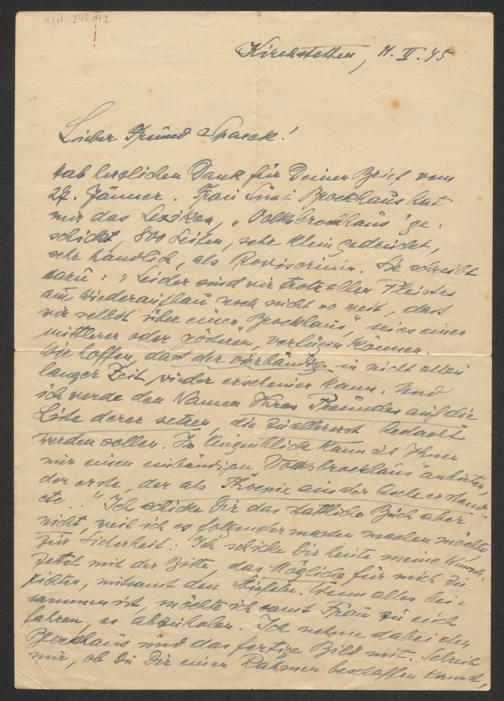 Kirchstetten, 11. II. 45
Lieber Freund Spaeck!
Hab herzlichen Dank für Deinen Brief vom
27. Jänner. Frau Susi Brockhaus hat
mir das Lexikon, "Volksbrockhaus" ge-
schickt, 800 Seiten, sehr klein gedruckt,
sehr handlich, als Provisorium. Sie schreibt
dazu: "Leider sind wir trotz allen Fleisses
am Wiederaufbau noch nicht so weit, dass
wir selbst über einen "Brockhaus", sei es einen
mittleren oder grösseren, verfügen können.
Wir hoffen, dass der vierbändige in nicht allzu
langer Zeit wieder erscheinen kann. Und
ich werde den Namen Ihres Freundes auf die
Liste derer setzen, die zuallererst bedacht
werden sollen. Im Augenblick kann ich Ihnen
nur einen einbändigen "Volksbrockhaus" anbieten,
der erste, der als Phoenix aus der Asche erstand
etc. .." Ich schicke Dir das stattliche Buch aber
nicht, weil ich es folgendermassen machen möchte
zur Sicherheit. Ich schicke Dir heute meine
zettel mit der Bitte, das Mögliche für mich zu
mitsamt den Stiefeln. Wenn alles bei-
sammen ist, möchte ich samt Frau zu euch
fahren, es abzuholen. Ich nehme dabei den
und das fertige Bild mit. Schreib
mir, ob Du Dir einen Rahmen beschaffen kannst,